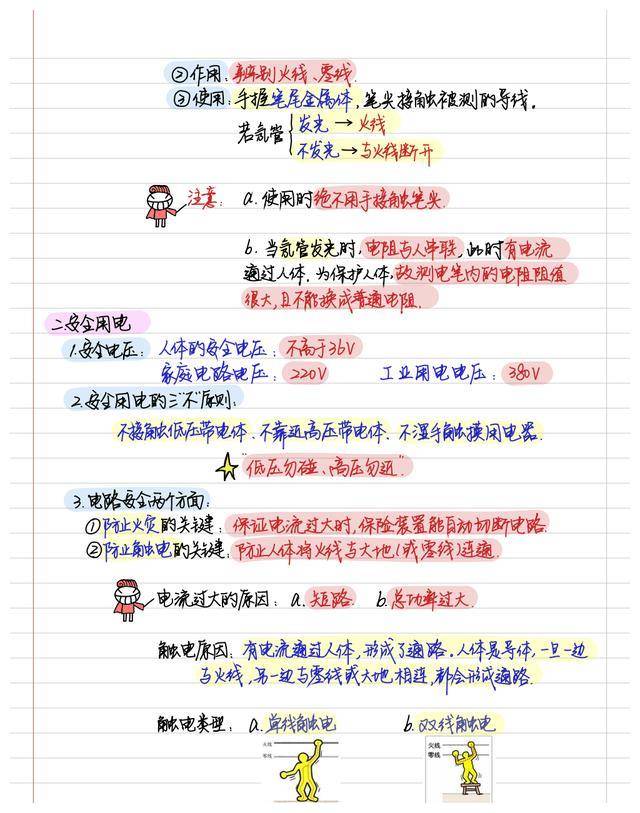 ②作用：辨别火线、零线.
③使用：手握笔尾金属体，笔尖接触被测的导线。
若氖管 { 发光 → 火线
不发光 → 与火线断开
注意： a. 使用时绝不用手接触笔尖.
b. 当氖管发光时，电阻与人串联，此时有电流
通过人体，为保护人体，故测电笔内的电阻阻值
很大，且不能换成普通电阻.
二.安全用电
1.安全电压：人体的安全电压：不高于36V
家庭电路电压：220V 工业用电电压：380V
2.安全用电的三“不”原则：
不接触低压带电体、不靠近高压带电体、不湿手触摸用电器.
“低压勿碰、高压勿近”
3.电路安全两个方面：
①防止火灾的关键：保证电流过大时，保险装置能自动切断电路.
②防止触电的关键：防止人体将火线与大地(或零线)连通.
电流过大的原因： a.短路. b.总功率过大.
触电原因：有电流通过人体，形成了通路。人体是导体，一旦一边
与火线，另一边与零线或大地相连，都会形成通路.
触电类型： a.单线触电 b.双线触电
火线 火线
零线 零线